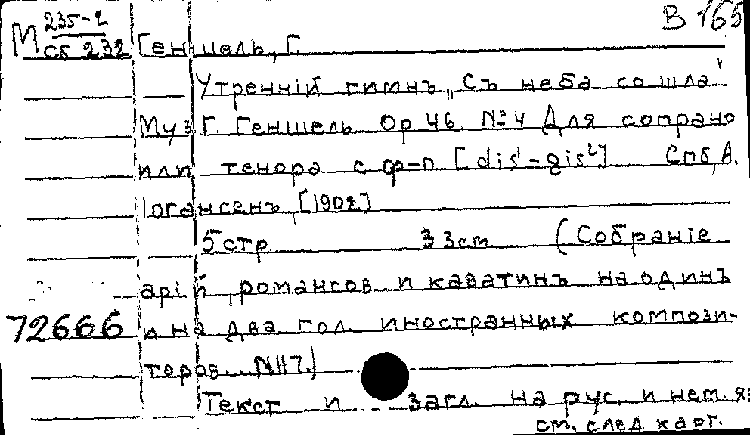 М 235-2 В 165
Сб 232 Геншель, Г.
Утреннiй гимнъ „Съ неба сошла"
Муз Г. Геншель Ор 46. №4 Для сопрано
или тенора с ф-п [dis¹-gis²] Спб, А.
Iогансенъ, [1902]
5 стр 33 cm (Собранiе
арiй, романсов и каватинъ на один
72666 и на два гол. иностранных компози-
торов. №117.)
Текст и загл. на рус. и нем. яз
см. след карт.